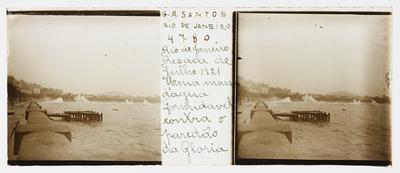 G.A. SANTOS
RIO DE JANEIRO
4780
Rio de Janeiro
Resaca de
Julho 1921
Uma massa
dagua
formidavel
contra o
paredão
da Gloria